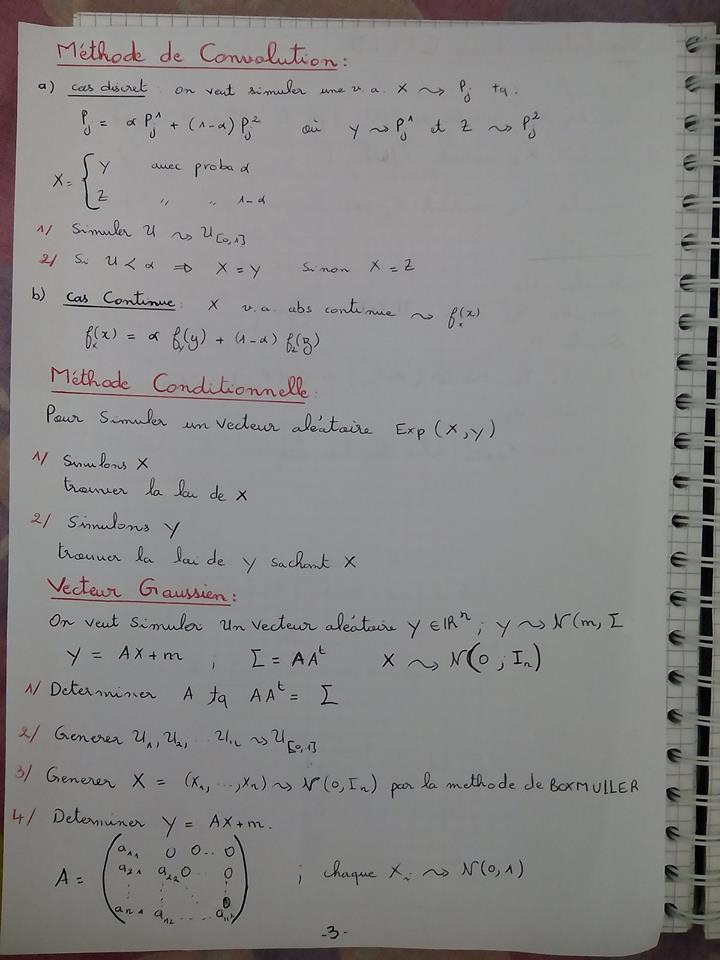 Méthode de Convolution :
a) cas discret : on veut simuler une v.a. X ⤳ Pj tq :
Pj = α Pj^1 + (1-α) Pj^2 où Y ⤳ Pj^1 et Z ⤳ Pj^2
X = { Y avec proba α
Z " " 1-α
1/ Simuler U ⤳ U[0,1]
2/ Si U < α ⇒ X = Y Sinon X = Z
b) Cas Continue : X v.a. abs continue ⤳ fx(x)
fx(x) = α fy(y) + (1-α) fz(z)
Méthode Conditionnelle :
Pour Simuler un Vecteur aléataire Exp (X, Y)
1/ Simulons X
trouver la loi de X
2/ Simulons Y
trouver la loi de Y sachant X
Vecteur Gaussien :
On veut Simuler Un Vecteur aléataire Y ∈ IR^n ; Y ⤳ N(m, Σ
Y = AX + m ; Σ = AA^t X ⤳ N(0 ; In)
1/ Determiner A tq AA^t = Σ
2/ Generer U1, U2, .. ⤳ U[0,1]
3/ Generer X = (X1, ..., Xn) ⤳ N(0, In) par la methode de BOXMULLER
4/ Determiner Y = AX + m.
A = ( a11 0 0 .. 0
a21 a22 0 0
an1 an2 .... ann ) ; chaque Xi ⤳ N(0, 1)
-3-